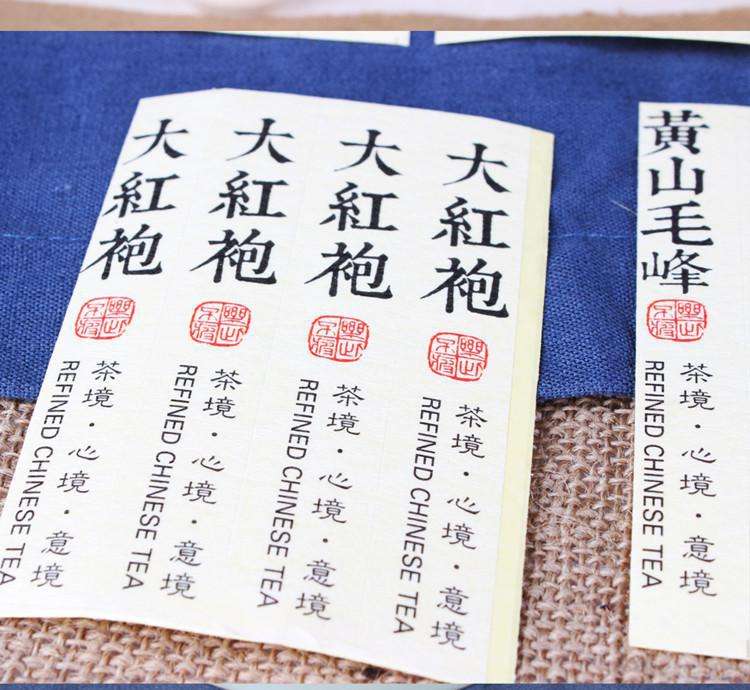 大紅袍
茶境·心境·意境
REFINED CHINESE TEA
大紅袍
茶境·心境·意境
REFINED CHINESE TEA
大紅袍
茶境·心境·意境
REFINED CHINESE TEA
大紅袍
茶境·心境·意境
REFINED CHINESE TEA
黃山毛峰
茶境·心境·意境
REFINED CHINESE TEA